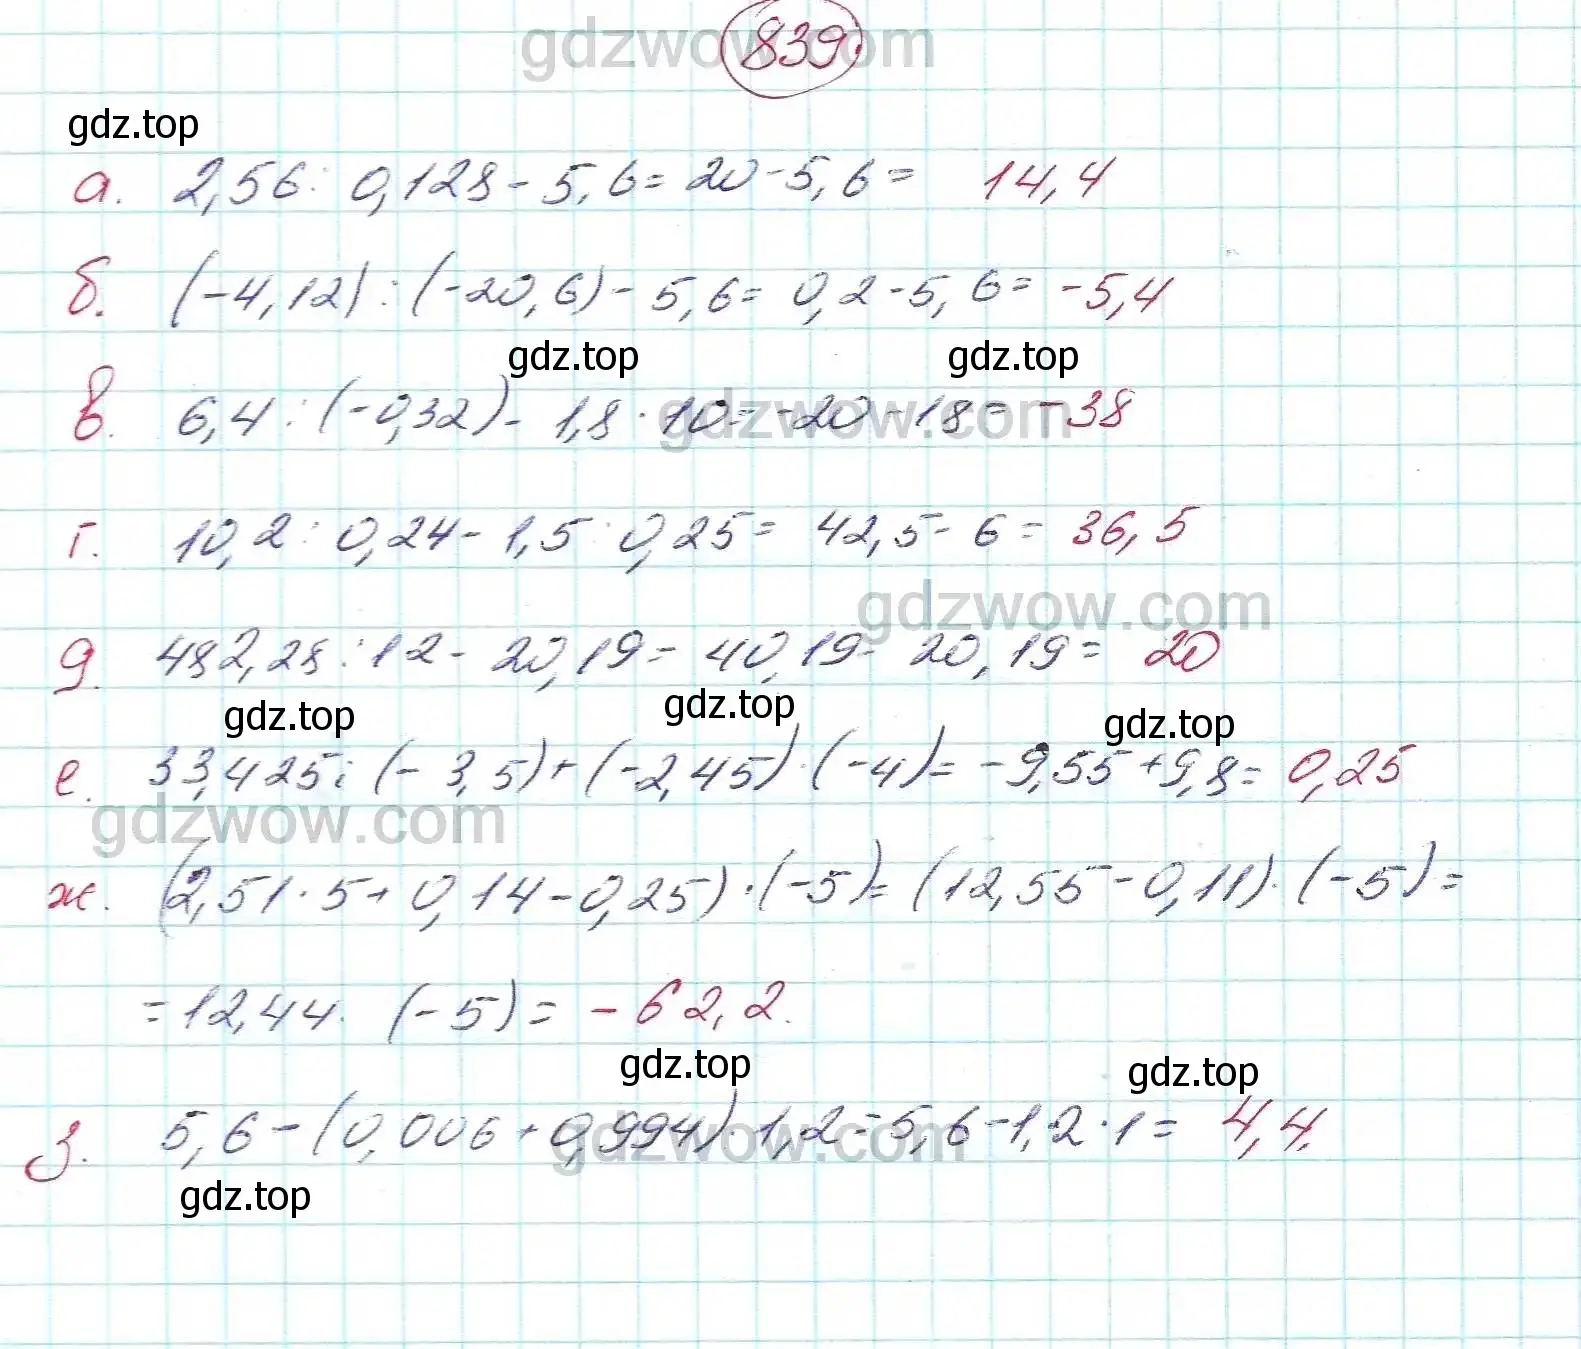 gdzwow.com
839.
gdz.top
а. 2,56 : 0,128 - 5,6 = 20 - 5,6 = 14,4
б. (-4,12) : (-20,6) - 5,6 = 0,2 - 5,6 = -5,4
gdz.top gdz.top
в. 6,4 : (-0,32) - 1,8 · 10 = -20 - 18 = -38
gdzwow.com
г. 10,2 : 0,24 - 1,5 : 0,25 = 42,5 - 6 = 36,5
gdzwow.com
д. 482,28 : 12 - 20,19 = 40,19 - 20,19 = 20
gdz.top gdz.top gdz.top
е. 33,425 : (-3,5) + (-2,45) · (-4) = -9,55 + 9,8 = 0,25
gdzwow.com
ж. (2,51 · 5 + 0,14 - 0,25) · (-5) = (12,55 - 0,11) · (-5) =
= 12,44 · (-5) = -62,2.
gdz.top gdz.top
з. 5,6 - (0,006 + 0,994) · 1,2 = 5,6 - 1,2 · 1 = 4,4.
gdzwow.com
gdz.top